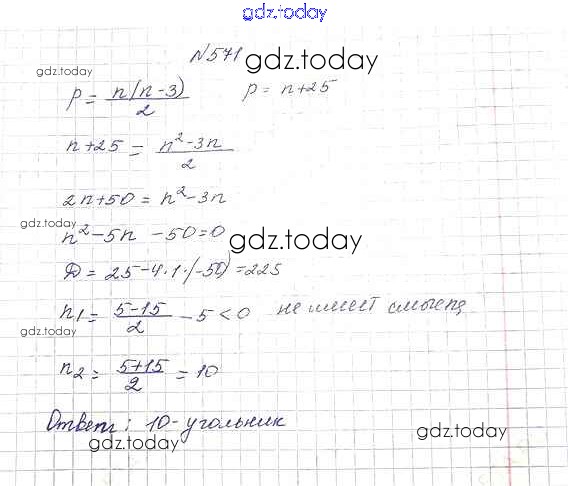 gdz.today
N571 gdz.today
gdz.today
P = n(n-3)/2 P = n+25
n+25 = n²-3n/2
2n+50 = n²-3n
gdz.today
n²-5n -50=0 gdz.today
D = 25-4·1·(-50) = 225
n₁ = 5-15/2 - 5 < 0 не имеет смысла
gdz.today
n₂ = 5+15/2 = 10
Ответ: 10-угольник
gdz.today gdz.today